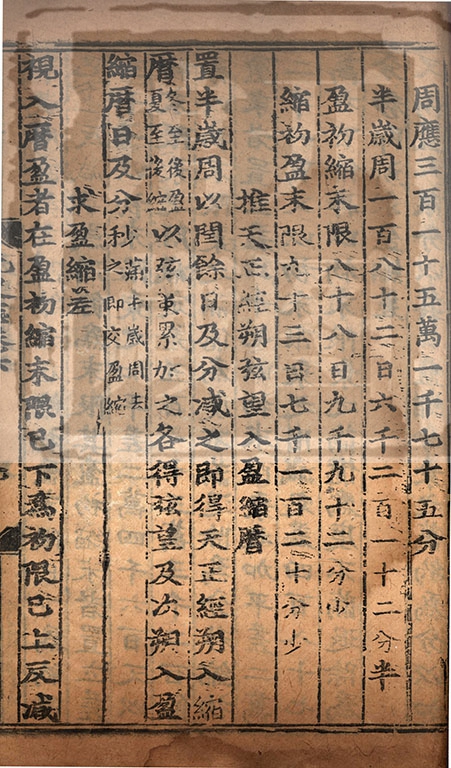 周應三百一十五萬一千七十五分
半歲周一百八十二日六千二百一十二分半
盈初縮末限八十八日九千九十二分少
縮初盈末限九十三日七千一百二十分少
推天正經朔弦望入盈縮曆
置半歲周以閏餘日及分減之即得天正經朔入縮
曆冬至後盈夏至後縮以弦策累加之各得弦望及次朔入盈
縮曆日及分秒滿半歲周去之即交盈縮
求盈縮差
視入曆盈者在盈初縮末限已下為初限已上反減